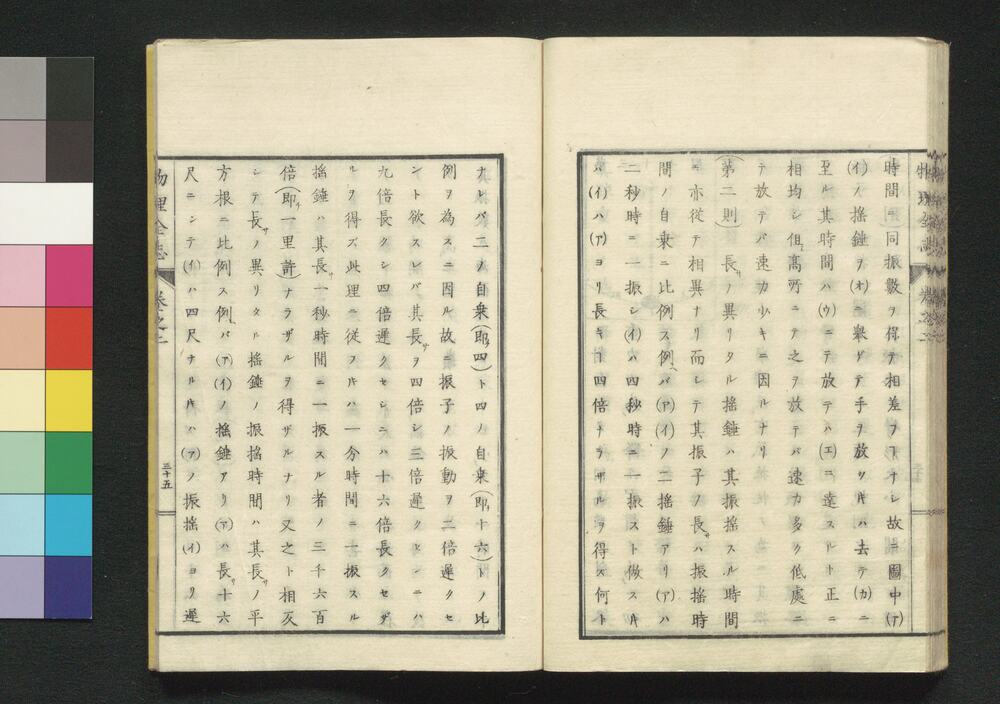 時間ニ同振數ヲ得テ相差フヿナシ故ニ圖中(ア)
(イ)ノ搖錘ヲ(オ)ニ擧ゲテ手ヲ放ツ片ハ去テ(カ)ニ
至ル其時間ハ(ウ)ニテ放テハ(エ)ニ達スルト正ニ
相均シ但シ高所ニテ之ヲ放テバ速力多ク低處ニ
テ放テバ速力少キニ因ルナリ
(第二則)長サノ異リタル搖錘ハ其振搖スル時間
モ亦從テ相異ナリ而シテ其振子ノ長サハ振搖時
間ノ自乗ニ比例ス例ヘバ(ア)(イ)ノ二搖錘アリ(ア)ハ
二秒時ニ一振シ(イ)ハ四秒時ニ一振スト做ス片
ハ(イ)ハ(ア)ヨリ長キヿ四倍ナラザルヲ得ズ何ト
ナレバ二ノ自乗(即四)ト四ノ自乗(即チ十六)トノ比
例ヲ為スニ因ル故ニ振子ノ振動ヲ二倍遲クセ
ント欲スレバ其長サヲ四倍シ三倍遲クセンニハ
九倍長クシ四倍遲クセンニハ十六倍長クセザ
ルヲ得ズ此理ニ從フ片ハ一分時間ニ一振スル
搖錘ハ其長サ一秒時間ニ一振スル者ノ三千六百
倍(即チ一里許)ナラザルヲ得ザルナリ又之ト相反
シテ長サノ異リタル搖錘ノ振搖時間ハ其長サノ平
方根ニ比例ス例ヘバ(ア)(イ)ノ搖錘アリ(ア)ハ長サ十六
尺ニシテ(イ)ハ四尺ナル片ハ(ア)ノ振搖(イ)ヨリ遲
物理全志
卷之二
三十五